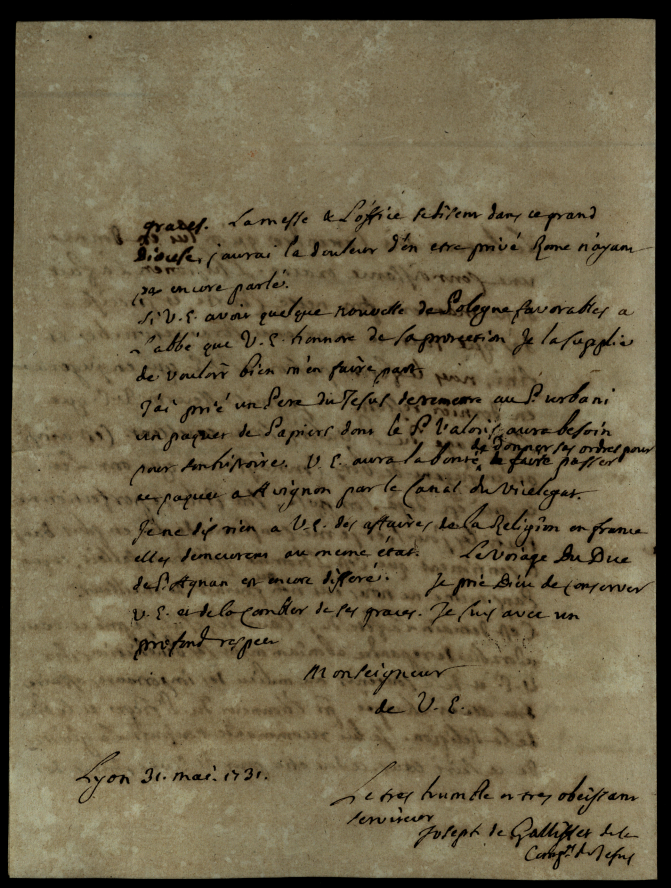 graces. La messe & L'office se disent dans ce grand
Diocese, j'aurai la douleur d'en etre privé Rome n'ayant
pas encore parlé.
Si V. E. avoit quelque nouvelle de Pologne favorables a
L'abbé que V. E. honnore de sa protection Je la supplie
de vouloir bien m'en faire part.
J'ai prié un Pere du Jesus de remettre au P. urbani
un paquet de Papiers dont le P. Valoris aura besoin
pour son histoire. V. E. aura la bonté de donner ses ordres pour
le faire passer
ce paquet a Avignon par le Canal du Vicelegat.
Je ne dis rien a V. E. des affaires de la Religion en france
elles demeurent au meme état. Le Voiage Du Duc
de est encore differé. Je prie Dieu de conserver
V. E. et de la combler de ses graces. Je suis avec un
profond respect
Monseigneur
de V. E.
Lyon 31. mai. 1731.
Le tres humble et tres obeissant
serviteur
Joseph de Galliffet de la
Comp.e de Jesus